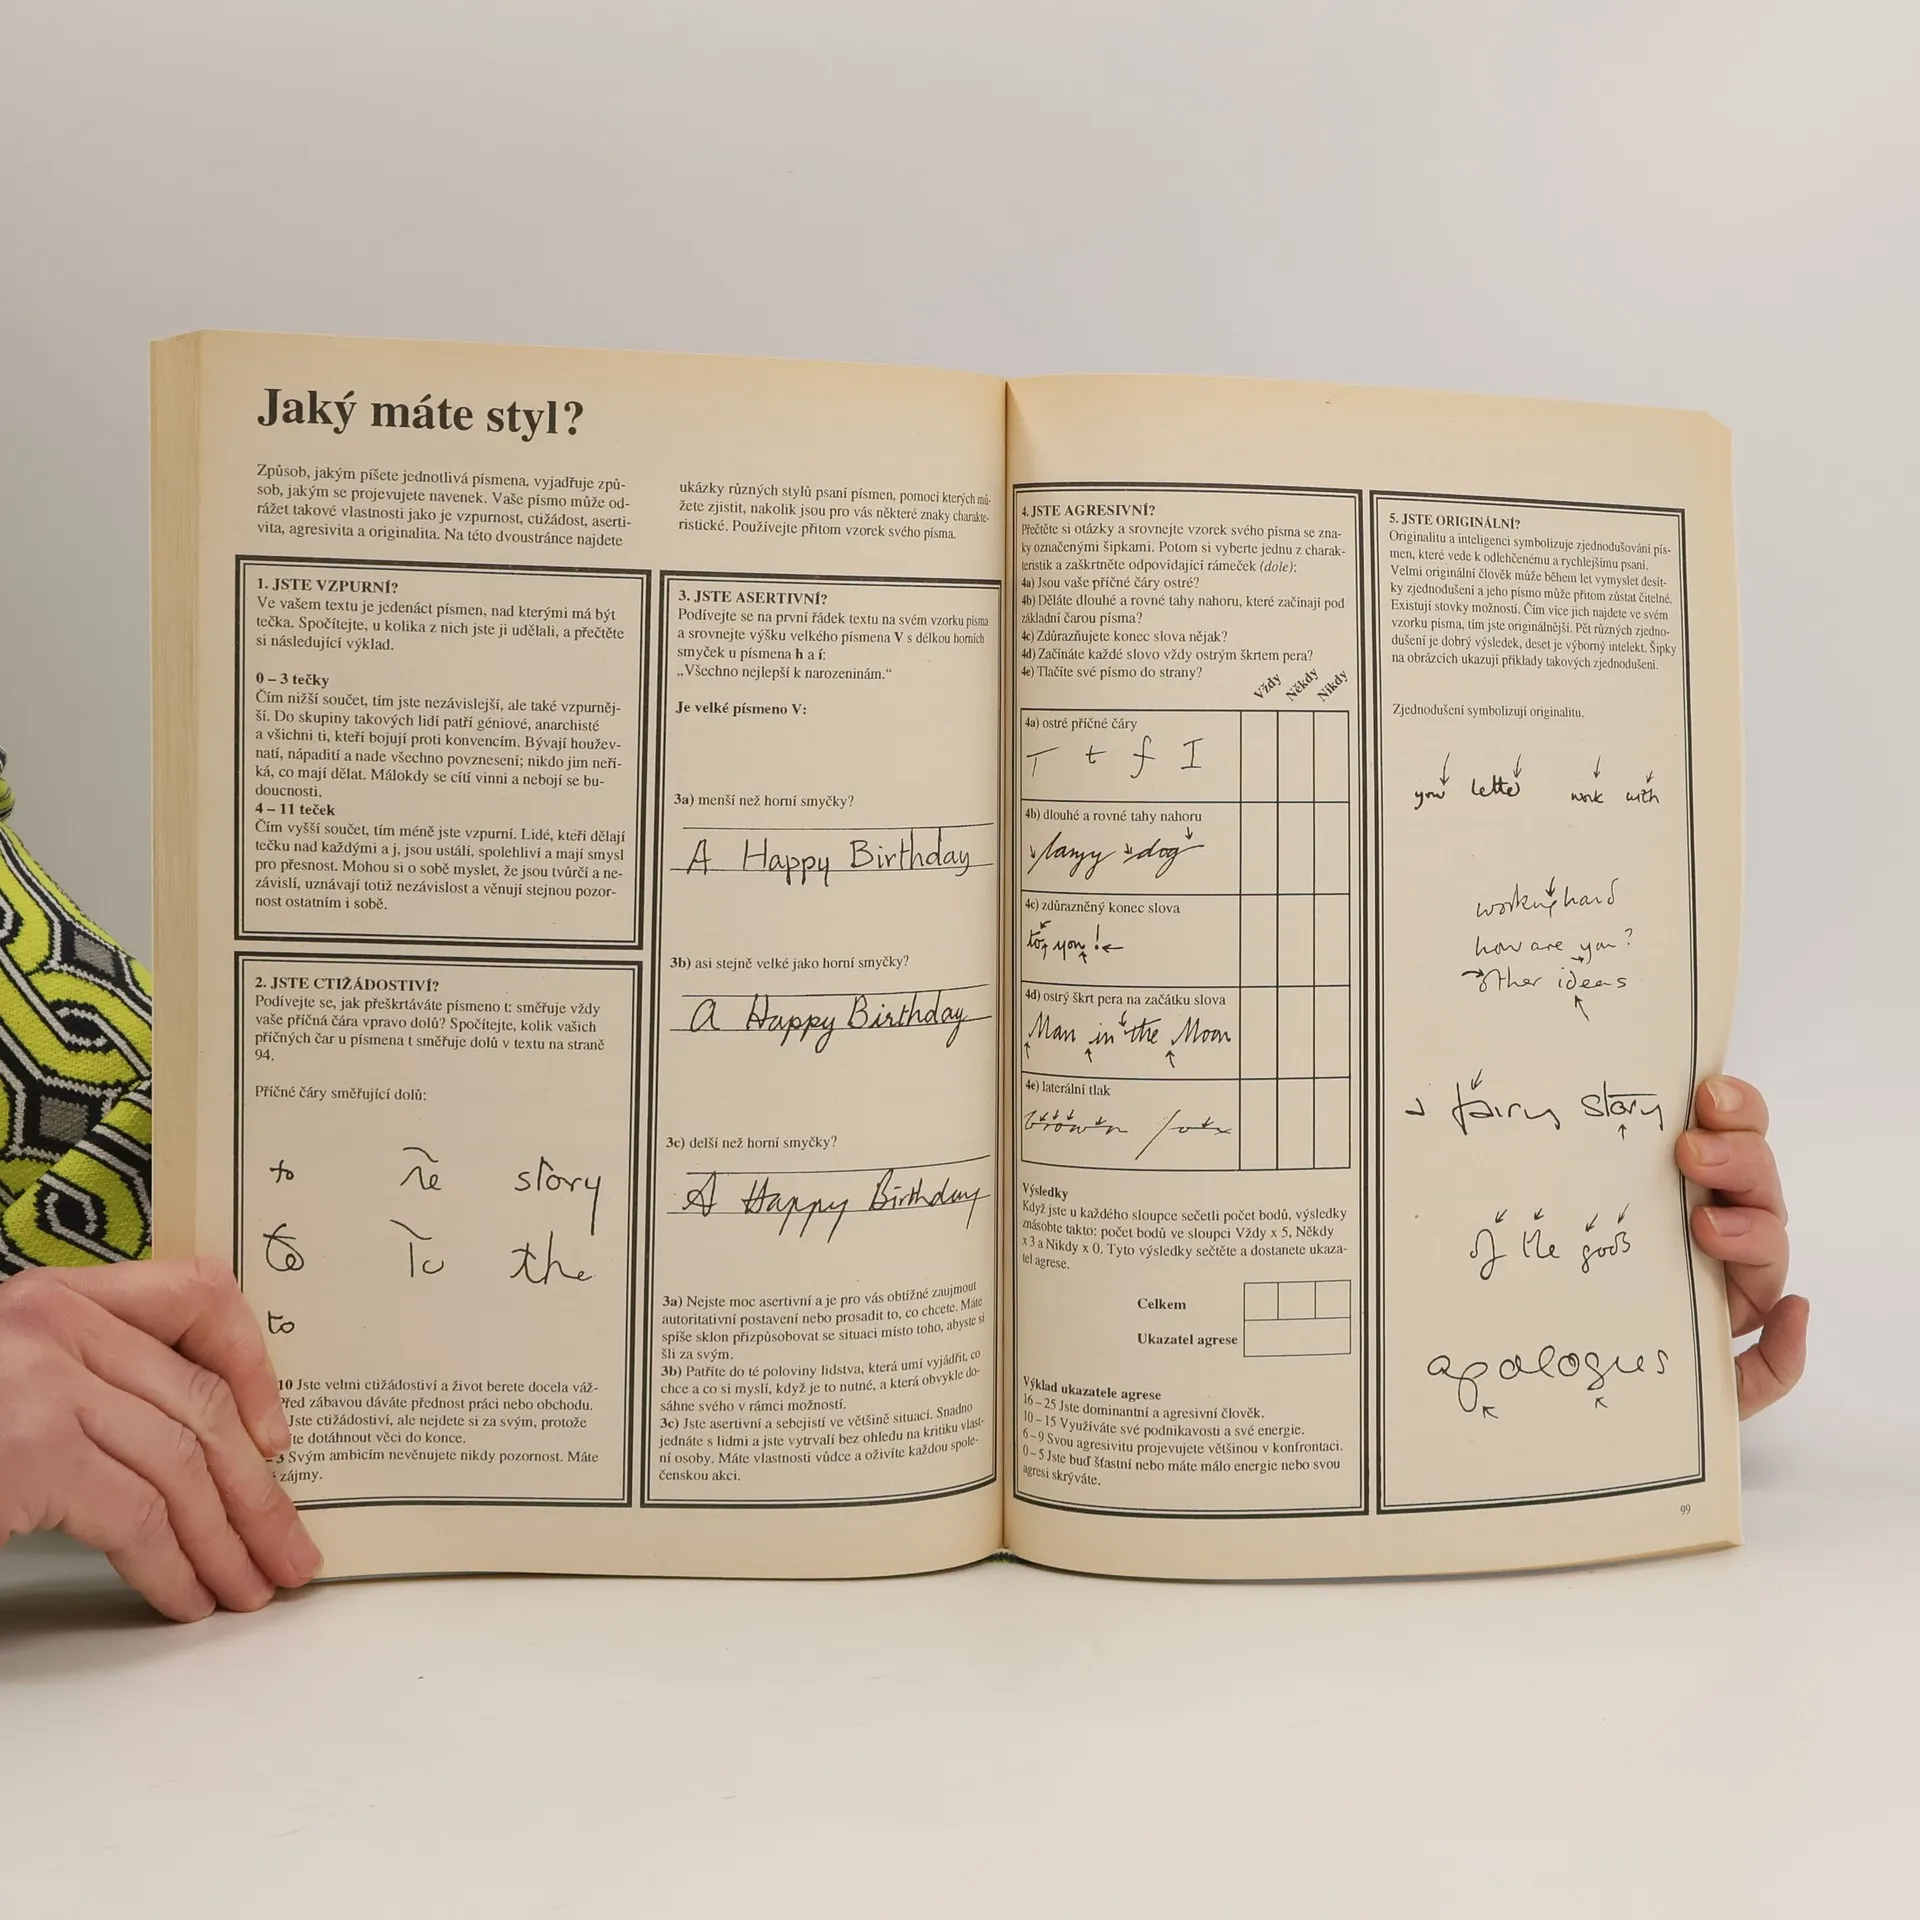 Jaký máte styl?
Způsob, jakým píšete jednotlivá písmena, vyjadřuje způ-
sob, jakým se projevujete navenek. Vaše písmo může od-
rážet takové vlastnosti jako je vzpurnost, ctižádost, aserti-
vita, agresivita a originalita. Na této dvoustránce najdete
ukázky různých stylů psaní písmen, pomocí kterých mů-
žete zjistit, nakolik jsou pro vás některé znaky charakte-
ristické. Používejte přitom vzorek svého písma.
1. JSTE VZPURNÍ?
Ve vašem textu je jedenáct písmen, nad kterými má být
tečka. Spočítejte, u kolika z nich jste ji udělali, a přečtěte
si následující výklad.
0 – 3 tečky
Čím nižší součet, tím jste nezávislejší, ale také vzpurněj-
ší. Do skupiny takových lidí patří géniové, anarchisté
a všichni ti, kteří bojují proti konvencím. Bývají houžev-
natí, nápadití a nade všechno povznesení; nikdo jim neří-
ká, co mají dělat. Málokdy se cítí vinni a nebojí se bu-
doucnosti.
4 – 11 teček
Čím vyšší součet, tím méně jste vzpurní. Lidé, kteří dělají
tečku nad každými a j, jsou ustálí, spolehliví a mají smysl
pro přesnost. Mohou si o sobě myslet, že jsou tvůrčí a ne-
závislí, uznávají totiž nezávislost a věnují stejnou pozor-
nost ostatním i sobě.
2. JSTE CTIŽÁDOSTIVÍ?
Podívejte se, jak přeškrtáváte písmeno t: směřuje vždy
vaše příčná čára vpravo dolů? Spočítejte, kolik vašich
příčných čar u písmena t směřuje dolů v textu na straně
94.
Příčné čáry směřující dolů:
to the story
to To the
to
10 Jste velmi ctižádostiví a život berete docela váž-
Před zábavou dáváte přednost práci nebo obchodu.
Jste ctižádostiví, ale nejdete si za svým, protože
íte dotáhnout věci do konce.
– 3 Svým ambicím nevěnujete nikdy pozornost. Máte
zájmy.
3. JSTE ASERTIVNÍ?
Podívejte se na první řádek textu na svém vzorku písma
a srovnejte výšku velkého písmena V s délkou horních
smyček u písmena h a í:
„Všechno nejlepší k narozeninám.“
Je velké písmeno V:
3a) menší než horní smyčky?
A Happy Birthday
3b) asi stejně velké jako horní smyčky?
A Happy Birthday
3c) delší než horní smyčky?
A Happy Birthday
3a) Nejste moc asertivní a je pro vás obtížné zaujmout
autoritativní postavení nebo prosadit to, co chcete. Máte
spíše sklon přizpůsobovat se situaci místo toho, abyste si
šli za svým.
3b) Patříte do té poloviny lidstva, která umí vyjádřit, co
chce a co si myslí, když je to nutné, a která obvykle do-
sáhne svého v rámci možností.
3c) Jste asertivní a sebejistí ve většině situací. Snadno
jednáte s lidmi a jste vytrvalí bez ohledu na kritiku vlast-
ní osoby. Máte vlastnosti vůdce a oživíte každou spole-
čenskou akci.
4. JSTE AGRESIVNÍ?
Přečtěte si otázky a srovnejte vzorek svého písma se zna-
ky označenými šipkami. Potom si vyberte jednu z charak-
teristik a zaškrtněte odpovídající rámeček (dole):
4a) Jsou vaše příčné čáry ostré?
4b) Děláte dlouhé a rovné tahy nahoru, které začínají pod
základní čarou písma?
4c) Zdůrazňujete konec slova nějak?
4d) Začínáte každé slovo vždy ostrým škrtem pera?
4e) Tlačíte své písmo do strany?
Vždy Někdy Nikdy
4a) ostré příčné čáry
T t f I
4b) dlouhé a rovné tahy nahoru
lazy dog
4c) zdůrazněný konec slova
to, you!
4d) ostrý škrt pera na začátku slova
Man in the Moon
4e) laterální tlak
brown fox
Výsledky
Když jste u každého sloupce sečetli počet bodů, výsledky
znásobte takto: počet bodů ve sloupci Vždy x 5, Někdy
x 3 a Nikdy x 0. Tyto výsledky sečtěte a dostanete ukaza-
tel agrese.
Celkem
Ukazatel agrese
Výklad ukazatele agrese
16 – 25 Jste dominantní a agresivní člověk.
10 – 15 Využíváte své podnikavosti a své energie.
6 – 9 Svou agresivitu projevujete většinou v konfrontaci.
0 – 5 Jste buď šťastní nebo máte málo energie nebo svou
agresi skrýváte.
5. JSTE ORIGINÁLNÍ?
Originalitu a inteligenci symbolizuje zjednodušování pís-
men, které vede k odlehčenému a rychlejšímu psaní.
Velmi originální člověk může během let vymyslet desít-
ky zjednodušení a jeho písmo může přitom zůstat čitelné.
Existují stovky možností. Čím více jich najdete ve svém
vzorku písma, tím jste originálnější. Pět různých zjedno-
dušení je dobrý výsledek, deset je výborný intelekt. Šipky
na obrázcích ukazují příklady takových zjednodušení.
Zjednodušení symbolizují originalitu.
your letter work with
working hard
how are you?
other ideas
fairy story
of the gods
apologies
99